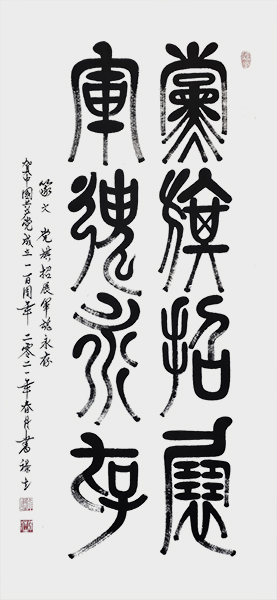 黨旗招展
軍魂永存
篆文 党旗招展軍魂永存
中國共产党成立一百周年 二零二一年春月書